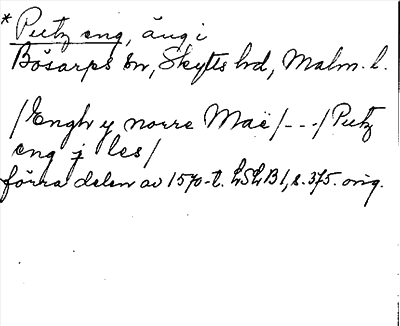 * Putz eng, äng i
Bösarps sn, Skytts hd, Malm. l.
/Engh y norre Maë/---/Putz
eng j les/
förra delen av 1570-t. LSLB1, s. 375. orig.